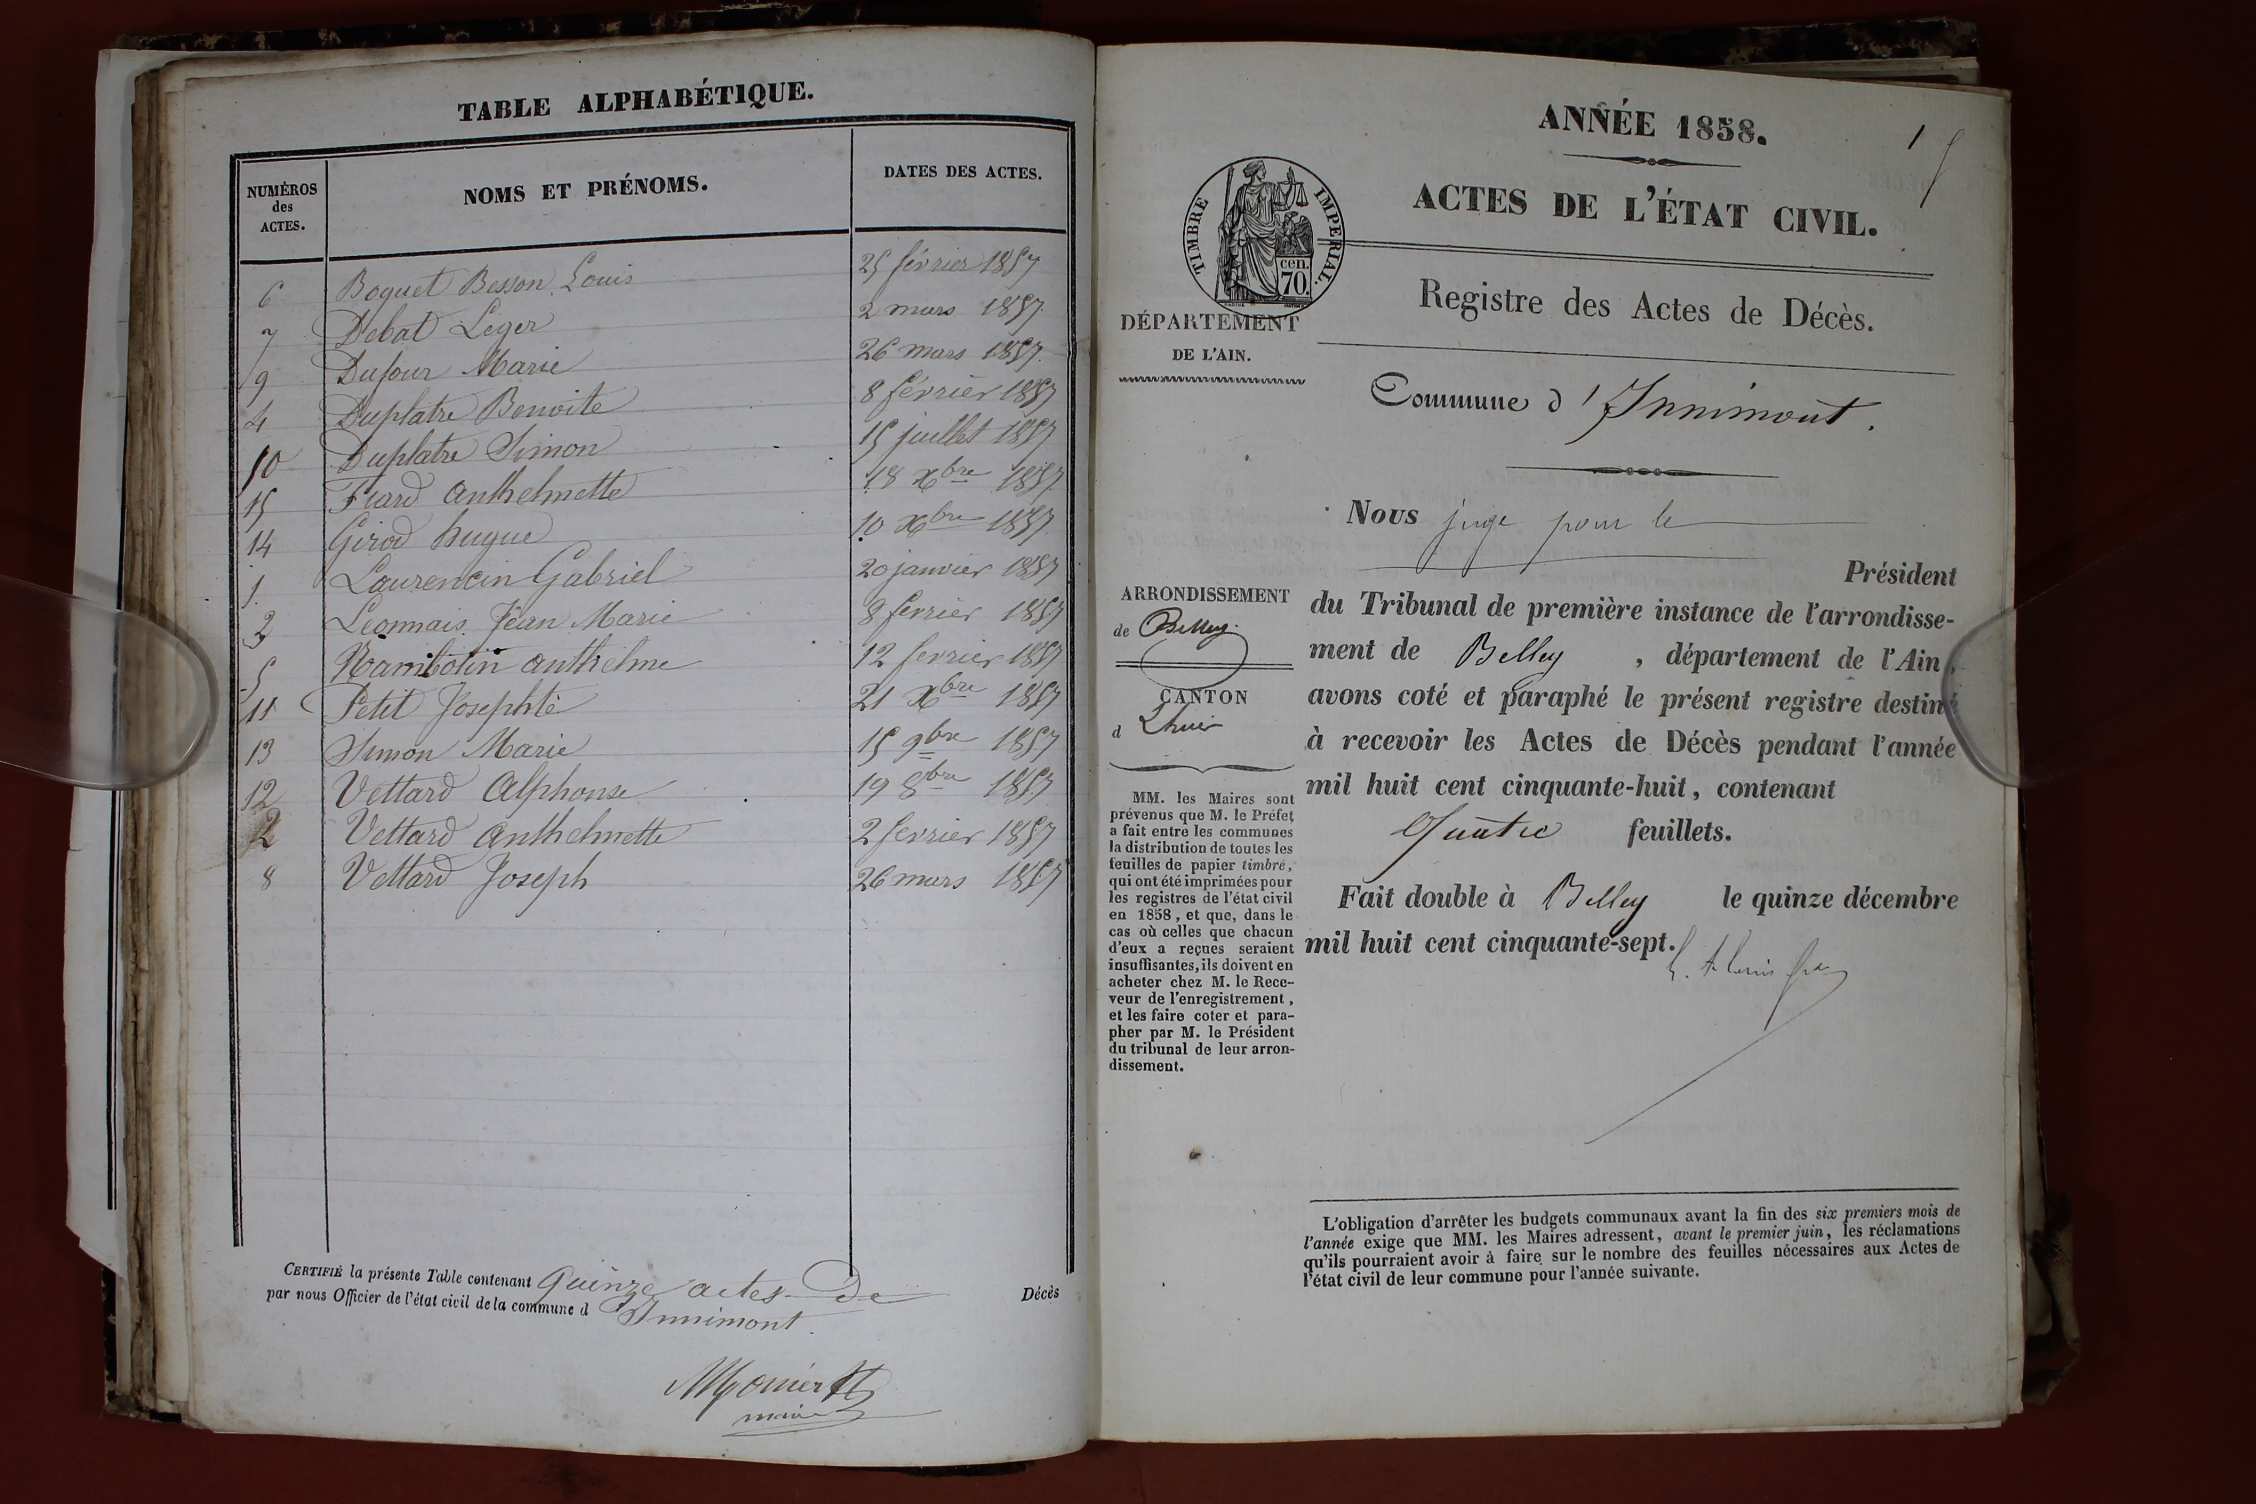 TABLE ALPHABÉTIQUE.
NUMÉROS des ACTES. NOMS ET PRÉNOMS. DATES DES ACTES.
6 Boquet Besson Louis 25 février 1857
7 Debat Leger 2 mars 1857.
9 Dufour Marie 26 mars 1857.
4 Duplatre Benoite 8 février 1857
10 Duplatre Simon 15 juillet 1857
15 Fiard Anthelmette 18 Xbre 1857
14 Girod hugue 10 Xbre 1857
1. Laurencin Gabriel 20 janvier 1857
Leonnais Jean Marie 8 fevrier 1857
5 Nambotin Anthelme 12 fevrier 1857
11 Petit Josephte 21 Xbre 1857
13 Simon Marie 15 9bre 1857
12 Vettard Alphonse 19 8bre 1857
2 Vettard Anthelmette 2 fevrier 1857
8 Vettard Joseph 26 mars 1857
CERTIFIÉ la présente Table contenant Quinze actes De Décès
par nous Officier de l'état civil de la commune d Innimont.
maire
ANNÉE 1858.
1
ACTES DE L'ÉTAT CIVIL.
TIMBRE IMPERIAL.
cen.
70.
Registre des Actes de Décès.
DÉPARTEMENT
DE L'AIN.
Commune d'Innimont.
Nous juge pour le
Président
du Tribunal de première instance de l'arrondisse-
ment de Belley, département de l'Ain,
avons coté et paraphé le présent registre destiné
à recevoir les Actes de Décès pendant l'année
mil huit cent cinquante-huit, contenant
Quatre feuillets.
Fait double à Belley le quinze décembre
mil huit cent cinquante-sept.
ARRONDISSEMENT
de Belley.
CANTON
d Lhuis
MM. les Maires sont
prévenus que M. le Préfet
a fait entre les communes
la distribution de toutes les
feuilles de papier timbré,
qui ont été imprimées pour
les registres de l'état civil
en 1858, et que, dans le
cas où celles que chacun
d'eux a reçues seraient
insuffisantes, ils doivent en
acheter chez M. le Rece-
veur de l'enregistrement,
et les faire coter et para-
pher par M. le Président
du tribunal de leur arron-
dissement.
L'obligation d'arrêter les budgets communaux avant la fin des six premiers mois de
l'année exige que MM. les Maires adressent, avant le premier juin, les réclamations
qu'ils pourraient avoir à faire sur le nombre des feuilles nécessaires aux Actes de
l'état civil de leur commune pour l'année suivante.